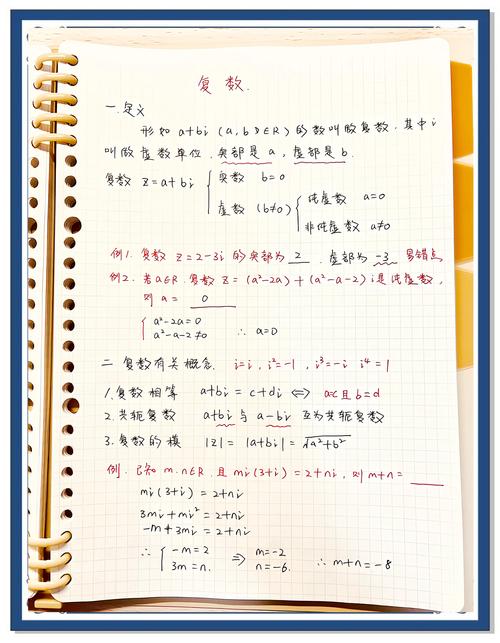 复数.
一.定义
形如 a+bi (a,b∈R) 的数叫做复数,其中 i
叫做虚数单位.实部是 a,虚部是 b.
复数 z=a+bi { 实数 b=0
虚数 (b≠0) { 纯虚数 a=0
非纯虚数 a≠0
例1. 复数 z=2-3i 的实部为 2 . 虚部为 -3 易错点
例2. 若a∈R.复数 z=(a²-2a)+(a²-a-2)i是纯虚数,
则 a= 0
{ a²-2a=0
a²-a-2≠0 ∴ a=0
二 复数有关概念. i=i, i²=-1, i³=-i i⁴=1
1.复数相等 a+bi=c+di ⇔ a=c且b=d
2.共轭复数 a+bi与a-bi 互为共轭复数
3.复数的模 |z|=|a+bi|=√a²+b²
例.已知 m.n∈R.且 mi(3+i)=2+ni,则m+n=
mi(3+i)=2+ni
3mi+mi²=2+ni
-m+3mi=2+ni
∴ { -m=2 ⇒ m=-2
3m=n. n=-6. ∴ m+n=-8